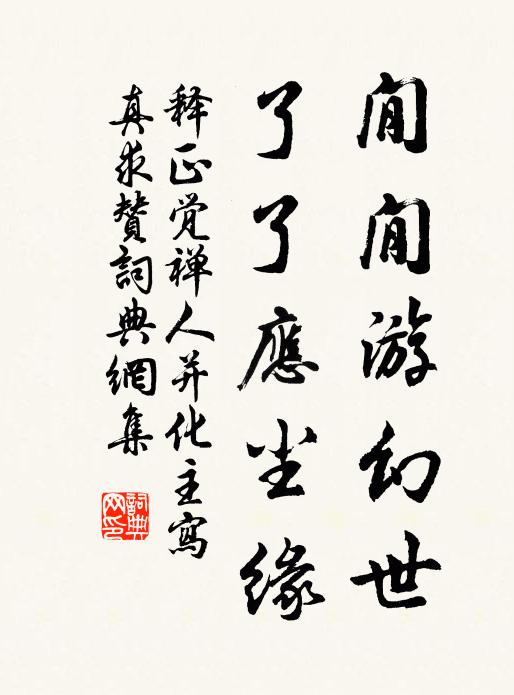 閒閒游幻世
了了應尘緣
释正觉禅人并化主寫
真求赞詞典網集
詞典网印